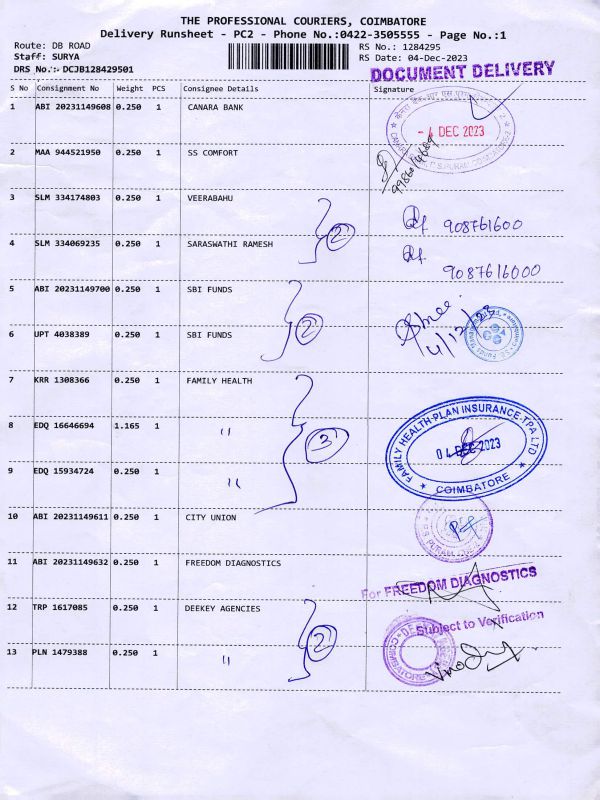 THE PROFESSIONAL COURIERS, COIMBATORE
Delivery Runsheet - PC2 - Phone No.:0422-3505555 - Page No.:1
Route: DB ROAD
RS No.: 1284295
Staff: SURYA
RS Date: 04-Dec-2023
DRS No.:- DCJB128429501
DOCUMENT DELIVERY
S No Consignment No Weight PCS Consignee Details Signature
1 ABI 20231149608 0.250 1 CANARA BANK
- 4 DEC 2023
2 MAA 944521950 0.250 1 SS COMFORT
3 SLM 334174803 0.250 1 VEERABAHU
2
908761600
4 SLM 334069235 0.250 1 SARASWATHI RAMESH
9087616000
5 ABI 20231149700 0.250 1 SBI FUNDS
2
4/12/23
6 UPT 4038389 0.250 1 SBI FUNDS
7 KRR 1308366 0.250 1 FAMILY HEALTH
8 EDQ 16646694 1.165 1 "
3
FAMILY HEALTH PLAN INSURANCE TPA LTD
04 DEC 2023
COIMBATORE
9 EDQ 15934724 0.250 1 "
10 ABI 20231149611 0.250 1 CITY UNION
11 ABI 20231149632 0.250 1 FREEDOM DIAGNOSTICS
For FREEDOM DIAGNOSTICS
12 TRP 1617085 0.250 1 DEEKEY AGENCIES
2
Subject to Verification
13 PLN 1479388 0.250 1 "
COIMBATORE